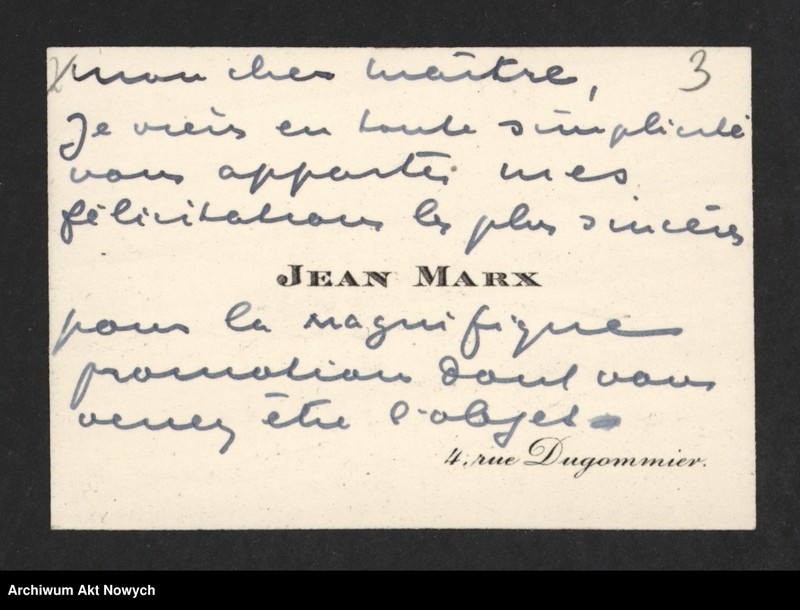 mon cher maître, 3
Je viens en toute simplicité
vous apporter mes
félicitations les plus sincères
JEAN MARX
pour la magnifique
promotion dont vous
venez être l'objet
4, rue Dugommier.
Archiwum Akt Nowych